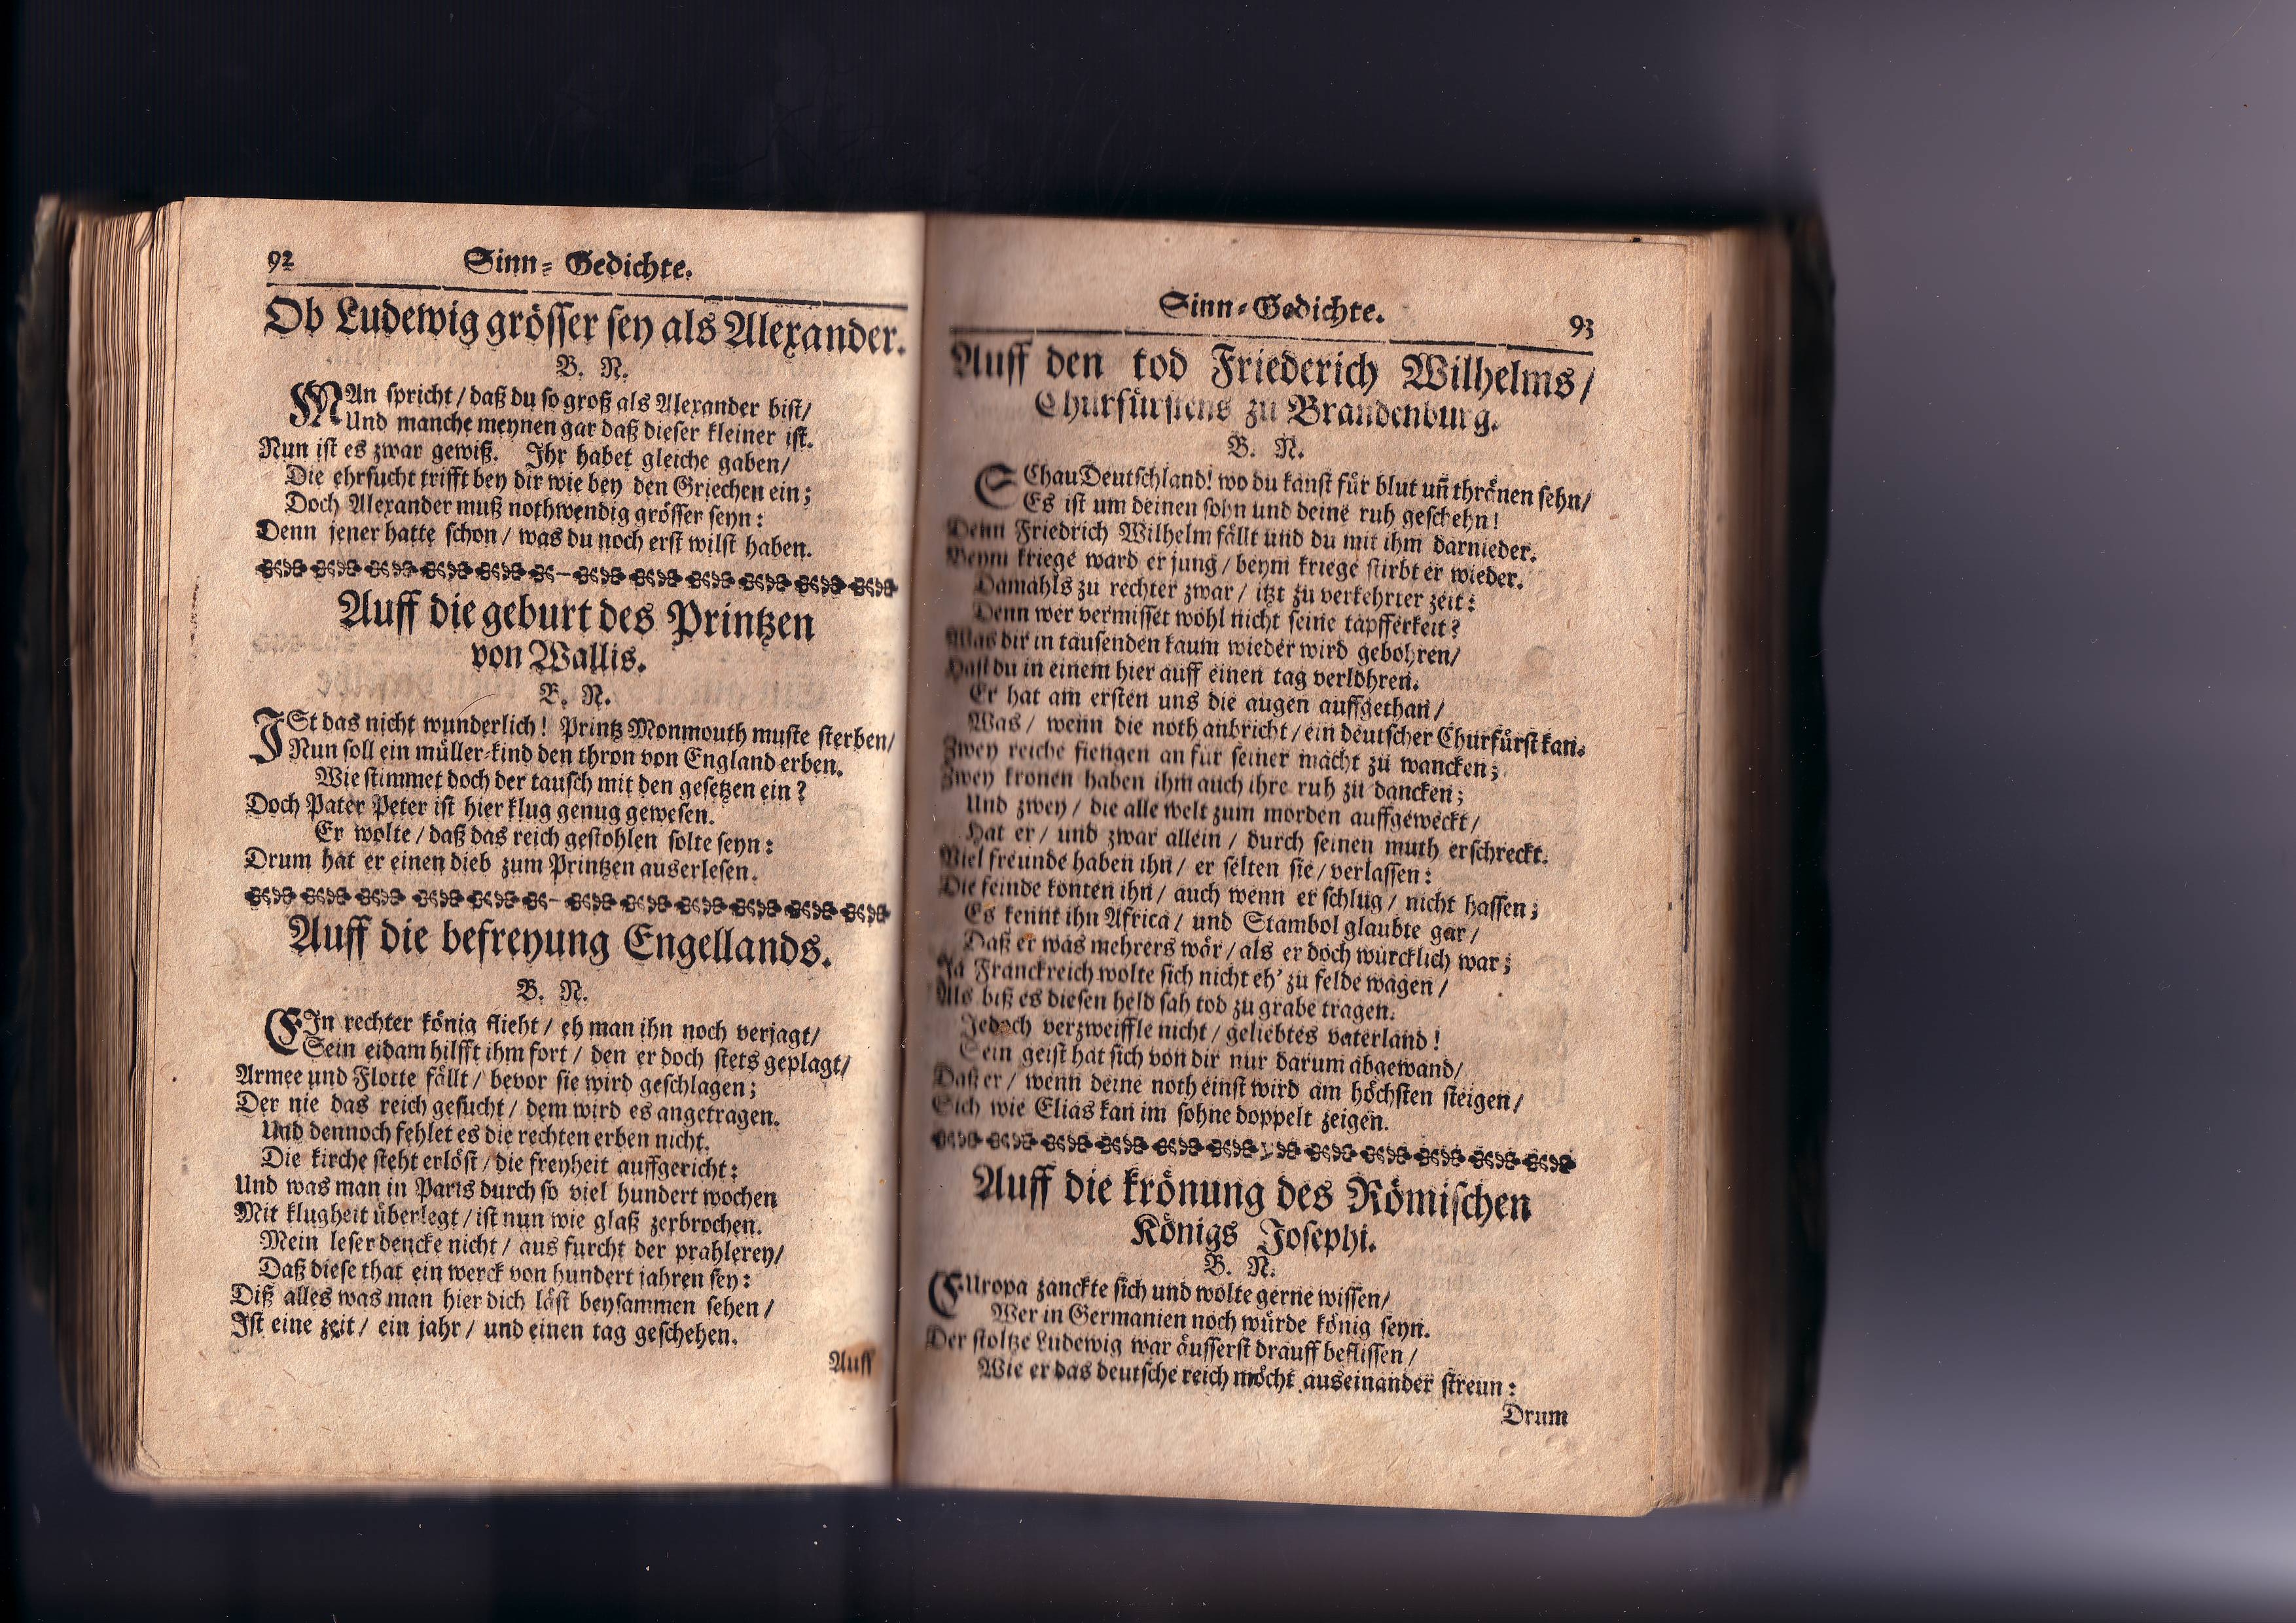 92
Sinn-Gedichte.
Ob Ludewig grösser sey als Alexander.
B. N.
MAn spricht/ daß du so groß als Alexander bist/
Und manche meynen gar daß dieser kleiner ist.
Nun ist es zwar gewiß. Ihr habet gleiche gaben/
Die ehrsucht trifft bey dir wie bey den Griechen ein;
Doch Alexander muß nothwendig grösser seyn:
Denn jener hatte schon/ was du noch erst wilst haben.
Auff die geburt des Printzen
von Wallis.
B. N.
ISt das nicht wunderlich! Printz Monmouth muste sterben/
Nun soll ein müller-kind den thron von England erben.
Wie stimmet doch der tausch mit den gesetzen ein?
Doch Pater Peter ist hier klug genug gewesen.
Er wolte/ daß das reich gestohlen solte seyn:
Drum hat er einen dieb zum Printzen auserlesen.
Auff die befreyung Engellands.
B. N.
EIn rechter könig flieht/ eh man ihn noch verjagt/
Sein eidam hilfft ihm fort/ den er doch stets geplagt/
Armee und Flotte fällt/ bevor sie wird geschlagen;
Der nie das reich gesucht/ dem wird es angetragen.
Und dennoch fehlet es die rechten erben nicht.
Die kirche steht erlöst/ die freyheit auffgericht:
Und was man in Paris durch so viel hundert wochen
Mit klugheit überlegt/ ist nun wie glaß zerbrochen.
Mein leser dencke nicht/ aus furcht der prahlerey/
Daß diese that ein werck von hundert jahren sey:
Diß alles was man hier dich läst beysammen sehen/
Ist eine zeit/ ein jahr/ und einen tag geschehen.
Auff
Sinn-Gedichte.
93
Auff den tod Friederich Wilhelms/
Churfürstens zu Brandenburg.
B. N.
SChau Deutschland! wo du kanst für blut uñ thränen sehn/
Es ist um deinen sohn und deine ruh geschehn!
Denn Friedrich Wilhelm fällt und du mit ihm darnieder.
Beym kriege ward er jung/ beym kriege stirbt er wieder.
Damahls zu rechter zwar/ itzt zu verkehrter zeit:
Denn wer vermisset wohl nicht seine tapfferkeit?
Was dir in tausenden kaum wieder wird gebohren/
Hast du in einem hier auff einen tag verlohren.
Er hat am ersten uns die augen auffgethan/
Was/ wenn die noth anbricht/ ein deutscher Churfürst kan.
Zwey reiche fiengen an für seiner macht zu wancken;
Zwey kronen haben ihm auch ihre ruh zu dancken;
Und zwey/ die alle welt zum morden auffgeweckt/
Hat er/ und zwar allein/ durch seinen muth erschreckt.
Viel freunde haben ihn/ er selten sie/ verlassen:
Die feinde konten ihn/ auch wenn er schlug/ nicht hassen;
Es kennt ihn Africa/ und Stambol glaubte gar/
Daß er was mehrers wär/ als er doch würcklich war;
Ja Franckreich wolte sich nicht eh' zu felde wagen/
Als biß es diesen held sah tod zu grabe tragen.
Jedoch verzweiffle nicht/ geliebtes vaterland!
Sein geist hat sich von dir nur darum abgewand/
Daß er/ wenn deine noth einst wird am höchsten steigen/
Sich wie Elias kan im sohne doppelt zeigen.
Auff die krönung des Römischen
Königs Josephi.
B. N.
EUropa zanckte sich und wolte gerne wissen/
Wer in Germanien noch würde könig seyn.
Der stoltze Ludewig war äusserst drauff beflissen/
Wie er das deutsche reich möcht auseinander streun:
Drum